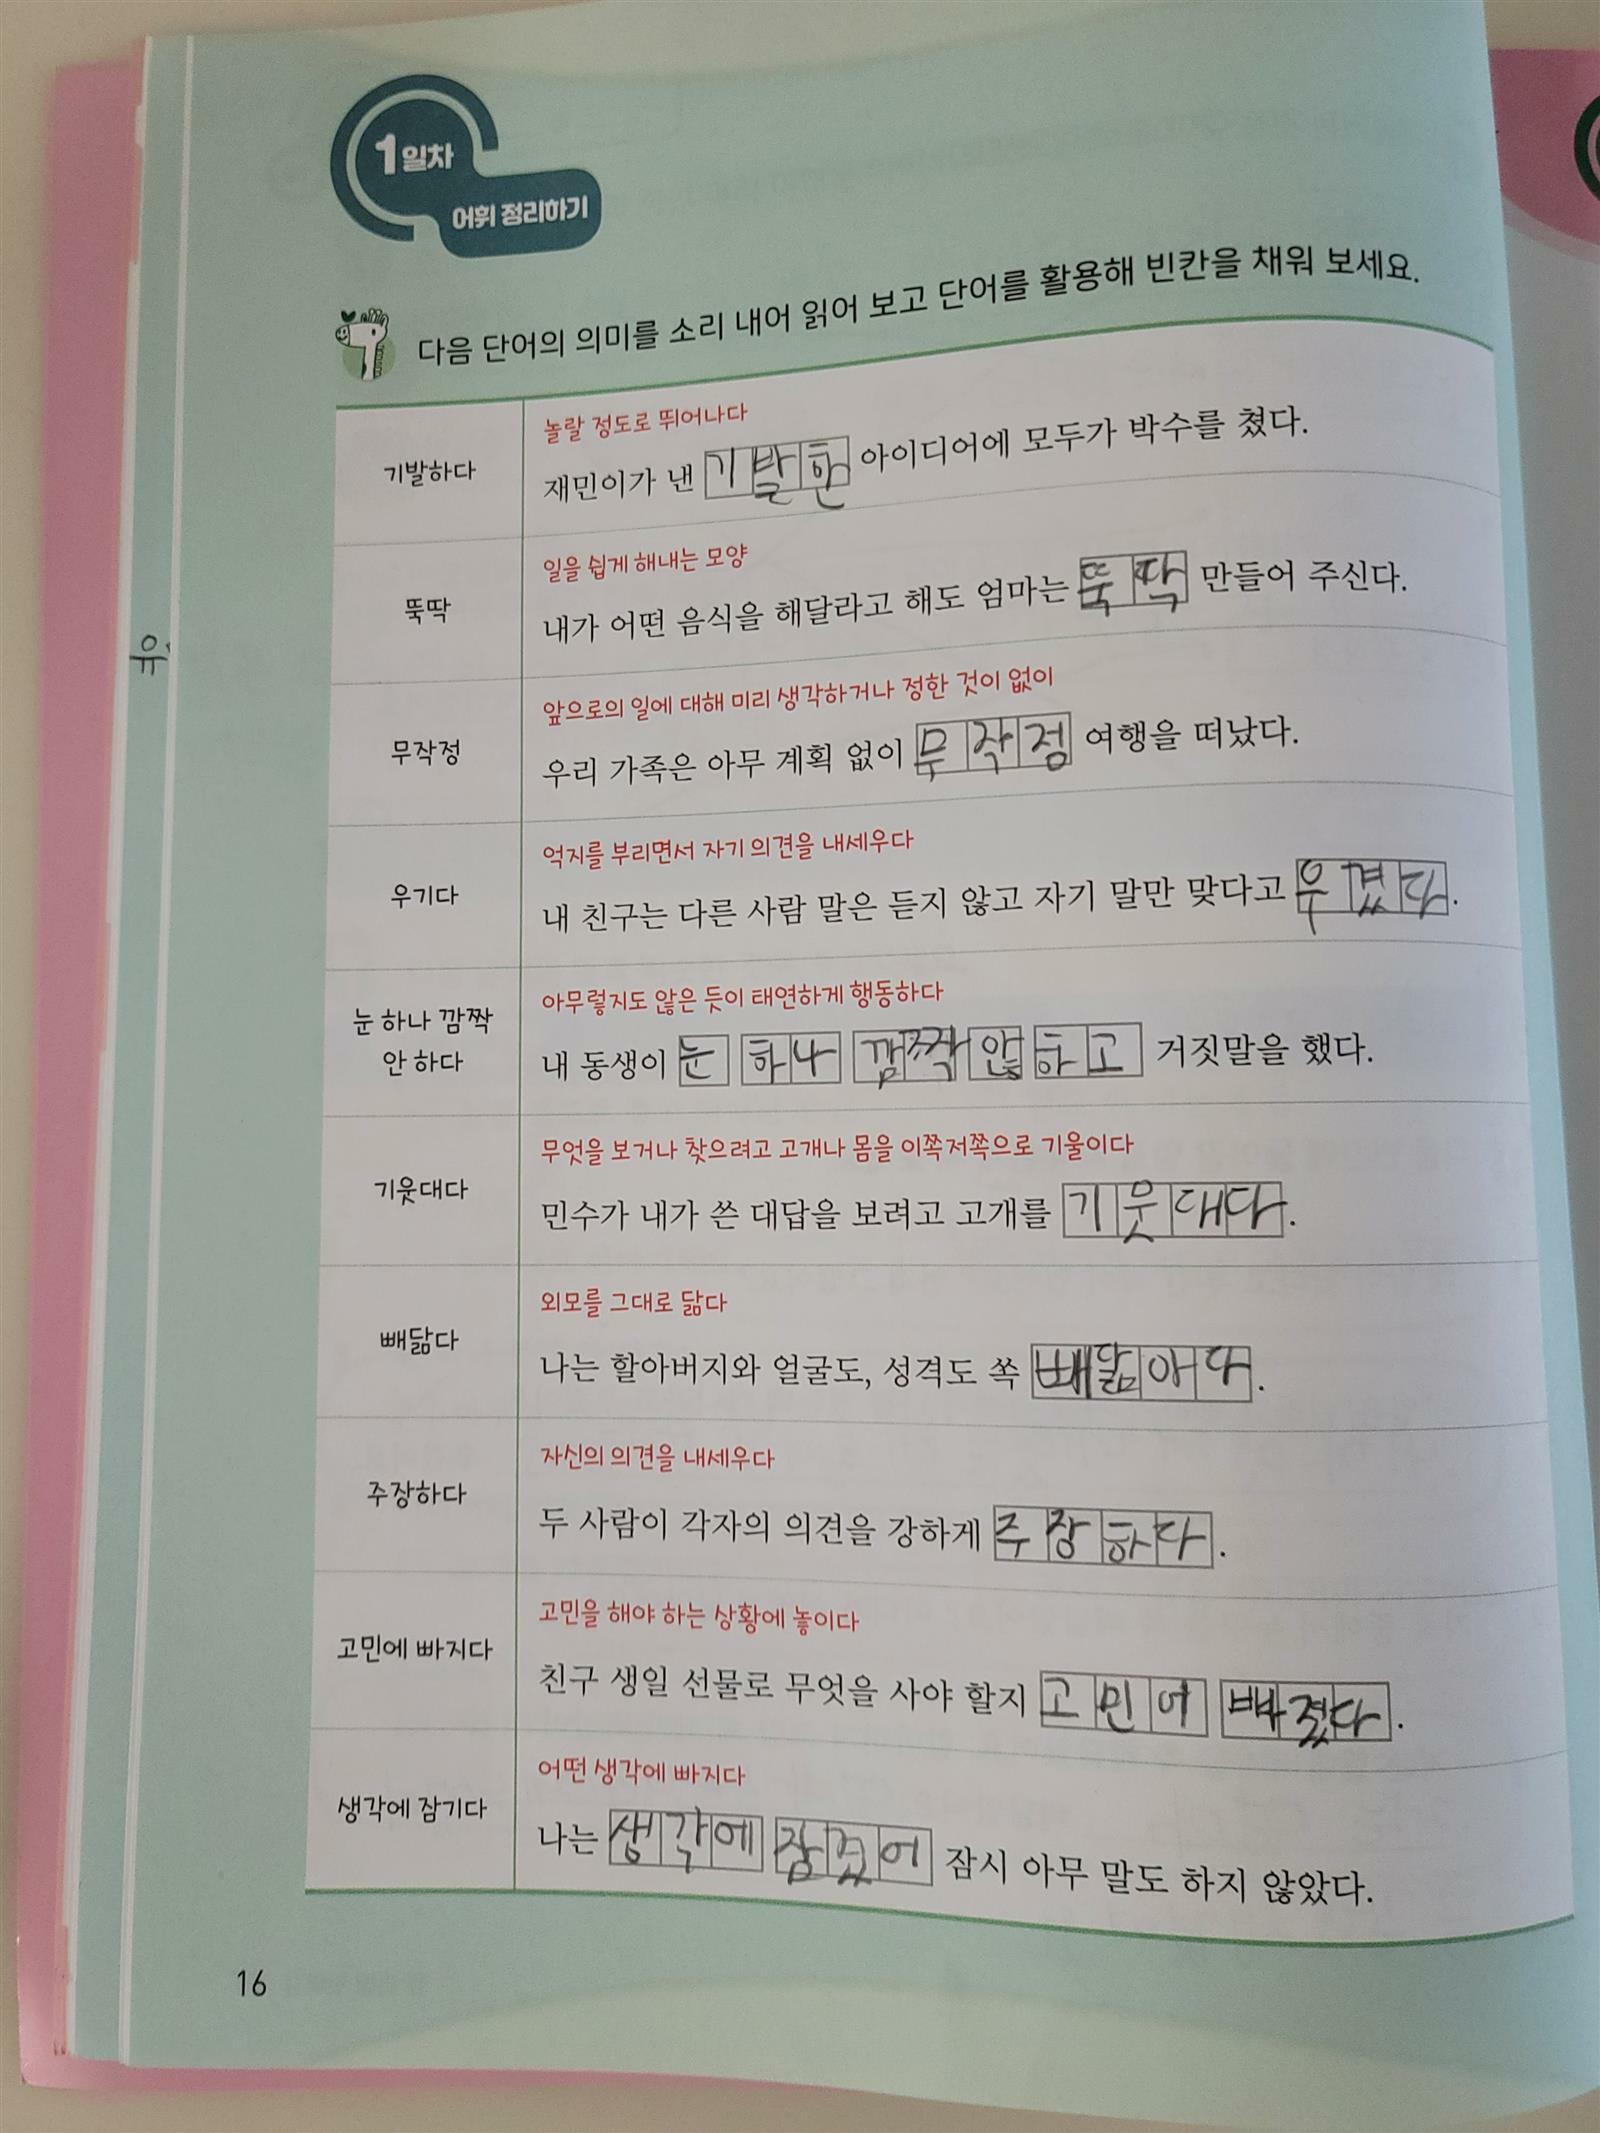 1일차
어휘 정리하기
다음 단어의 의미를 소리 내어 읽어 보고 단어를 활용해 빈칸을 채워 보세요.
기발하다
놀랄 정도로 뛰어나다
재민이가 낸 기발한 아이디어에 모두가 박수를 쳤다.
뚝딱
일을 쉽게 해내는 모양
내가 어떤 음식을 해달라고 해도 엄마는 뚝딱 만들어 주신다.
무작정
앞으로의 일에 대해 미리 생각하거나 정한 것이 없이
우리 가족은 아무 계획 없이 무작정 여행을 떠났다.
우기다
억지를 부리면서 자기 의견을 내세우다
내 친구는 다른 사람 말은 듣지 않고 자기 말만 맞다고 우겼다.
눈 하나 깜짝
안 하다
아무렇지도 않은 듯이 태연하게 행동하다
내 동생이 눈 하나 깜짝 않 하고 거짓말을 했다.
기웃대다
무엇을 보거나 찾으려고 고개나 몸을 이쪽저쪽으로 기울이다
민수가 내가 쓴 대답을 보려고 고개를 기웃대다.
빼닮다
외모를 그대로 닮다
나는 할아버지와 얼굴도, 성격도 쏙 빼닮아다.
주장하다
자신의 의견을 내세우다
두 사람이 각자의 의견을 강하게 주장하다.
고민에 빠지다
고민을 해야 하는 상황에 놓이다
친구 생일 선물로 무엇을 사야 할지 고민에 빠졌다.
생각에 잠기다
어떤 생각에 빠지다
나는 생각에 잠겼어 잠시 아무 말도 하지 않았다.
16
유